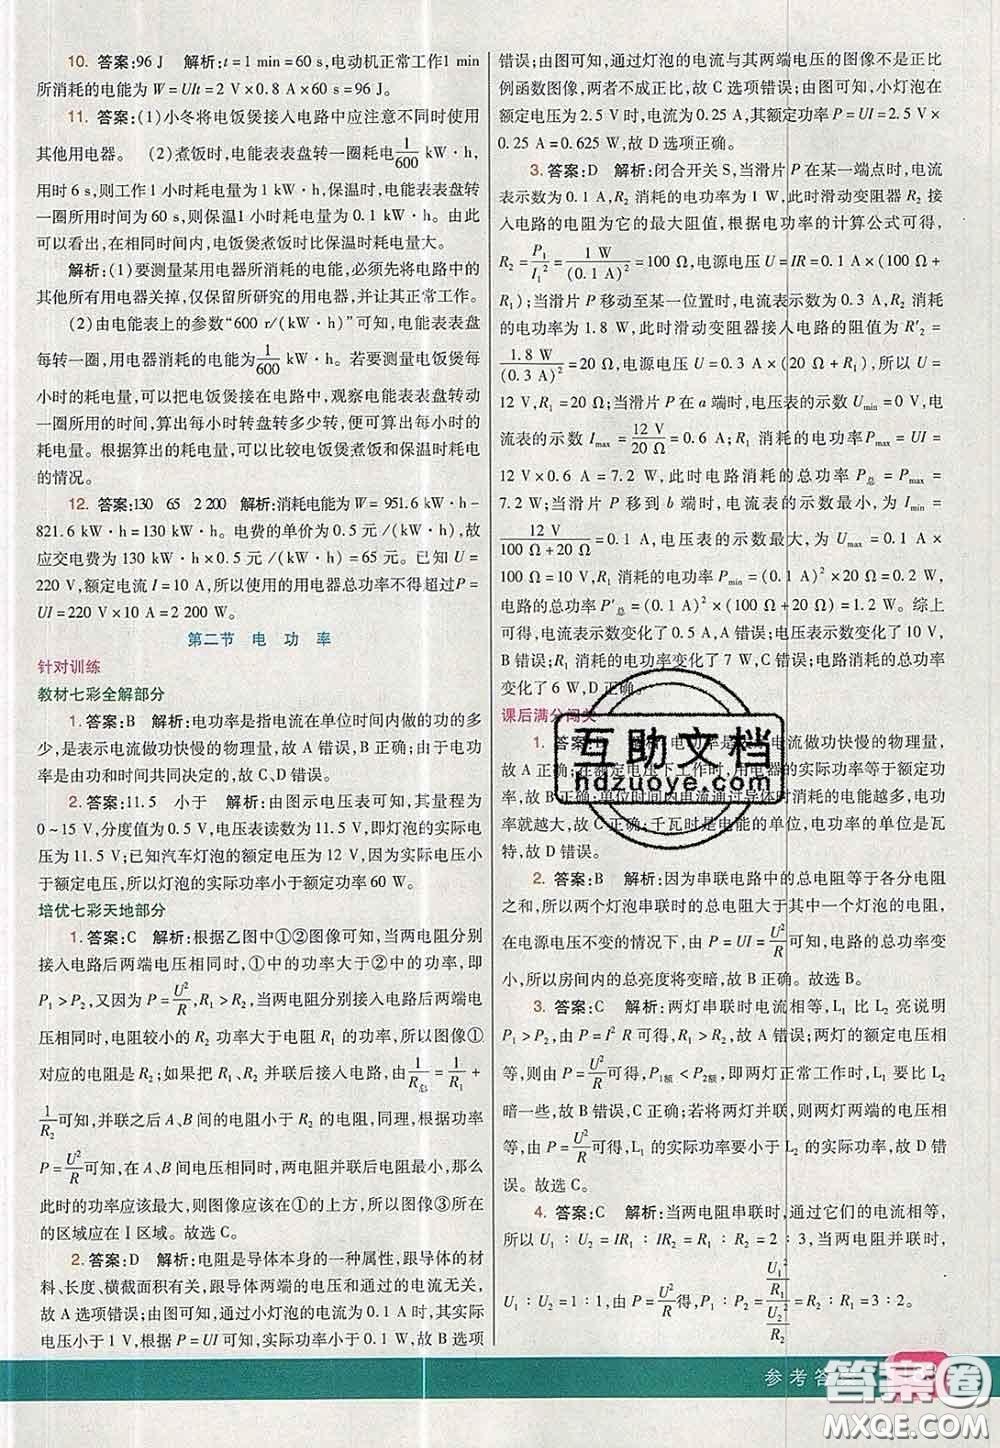 10. 答案:96 J 解析:t=1 min=60 s,电动机正常工作1 min
所消耗的电能为 W=UIt=2 V×0.8 A×60 s=96 J。
11. 答案:(1)小冬将电饭煲接入电路中应注意不同时使用
其他用电器。 (2)煮饭时,电能表表盘转一圈耗电1/600 kW·h,
用时 6 s,则工作 1 小时耗电量为 1 kW·h;保温时,电能表表盘转
一圈所用时间为 60 s,则保温1 小时耗电量为 0.1 kW·h。由此
可以看出,在相同时间内,电饭煲煮饭时比保温时耗电量大。
解析:(1)要测量某用电器所消耗的电能,必须先将电路中的
其他所有用电器关掉,仅保留所研究的用电器,并让其正常工作。
(2)由电能表上的参数“600 r/(kW·h)”可知,电能表表盘
每转一圈,用电器消耗的电能为1/600 kW·h。若要测量电饭煲每
小时的耗电量,可以将电饭煲接在电路中,观察电能表表盘转动
一圈所用的时间,算出每小时转盘转多少转,便可算出每小时的
耗电量。根据算出的耗电量,可以比较电饭煲煮饭和保温时耗电
的情况。
12. 答案:130 65 2 200 解析:消耗电能为 W=951.6 kW·h-
821.6 kW·h=130 kW·h。电费的单价为0.5 元/(kW·h),故
应交电费为 130 kW·h×0.5 元/(kW·h)=65 元。已知 U=
220 V,额定电流 I=10 A,所以使用的用电器总功率不得超过P=
UI=220 V×10 A=2 200 W。
第二节 电 功 率
针对训练
教材七彩全解部分
1. 答案:B 解析:电功率是指电流在单位时间内做的功的多
少,是表示电流做功快慢的物理量,故 A 错误,B 正确;由于电功
率是由功和时间共同决定的,故C、D 错误。
2. 答案:11.5 小于 解析:由图示电压表可知,其量程为
0~15 V,分度值为0.5 V,电压表读数为11.5 V,即灯泡的实际电
压为 11.5 V;已知汽车灯泡的额定电压为 12 V,因为实际电压小
于额定电压,所以灯泡的实际功率小于额定功率60 W。
培优七彩天地部分
1. 答案:C 解析:根据乙图中①②图像可知,当两电阻分别
接入电路后两端电压相同时,①中的功率大于②中的功率,即
P₁>P₂,又因为 P=U²/R,R₁>R₂,当两电阻分别接入电路后两端电
压相同时,电阻较小的 R₂ 功率大于电阻 R₁ 的功率,所以图像①
对应的电阻是 R₂;如果把 R₁、R₂ 并联后接入电路,由1/R总=1/R₁+
1/R₂可知,并联之后 A、B 间的电阻小于 R₂ 的电阻,同理,根据
P=U²/R可知,在 A、B 间电压相同时,因电阻并联后电阻最小,那么
此时的功率应该最大,则图像应该在①的上方,所以图像③所在
的区域应在Ⅰ区域。故选 C。
2. 答案:D 解析:电阻是导体本身的一种属性,跟导体的材
料、长度、横截面积有关,跟导体两端的电压和通过的电流无关,
故 A 选项错误;由图可知,通过小灯泡的电流为 0.1 A 时,其实际
电压小于 1 V,根据 P=UI 可知,实际功率小于 0.1 W,故 B 选项
错误;由图可知,通过灯泡的电流与其两端电压的图像不是正比
例函数图像,两者不成正比,故 C 选项错误;由图可知,小灯泡在
额定电压为 2.5 V时,电流为 0.25 A,其额定功率 P=UI=2.5 V×
0.25 A=0.625 W,故 D 选项正确。
3. 答案:D 解析:闭合开关 S,当滑片 P 在某一端点时,电流
表示数为0.1 A,R₂ 消耗的电功率为1 W,此时滑动变阻器 R₂ 接
入电路的电阻为它的最大阻值,根据电功率的计算公式可得,
R₂=P₁/I₁²=1 W/(0.1 A)²=100 Ω,电源电压 U=IR=0.1 A×(100 Ω+
R₁);当滑片 P 移动至某一位置时,电流表示数为 0.3 A,R₂ 消耗
的电功率为 1.8 W,此时滑动变阻器接入电路的阻值为 R′₂=
1.8 W/(0.3 A)²=20 Ω,电源电压 U=0.3 A×(20 Ω+R₁),所以 U=
12 V,R₁=20 Ω;当滑片 P 在 a 端时,电压表的示数 Umin=0 V,电
流表的示数 Imax=12 V/20 Ω=0.6 A;R₁ 消耗的电功率 Pmax=UI=
12 V×0.6 A=7.2 W,此时电路消耗的总功率 P总=Pmax=
7.2 W;当滑片 P 移到 b 端时,电流表的示数最小,为 Imin=
12 V/(100 Ω+20 Ω)=0.1 A,电压表的示数最大,为 Umax=0.1 A×
100 Ω=10 V,R₁ 消耗的电功率 Pmin=(0.1 A)²×20 Ω=0.2 W,
电路的总功率 P′总=(0.1 A)²×(100 Ω+20 Ω)=1.2 W。综上
可得,电流表示数变化了 0.5 A,A 错误;电压表示数变化了10 V,
B 错误;R₁ 消耗的电功率变化了 7 W,C 错误;电路的总功率变化
了 6 W,D 正确。
课后满分闯关
1. 答案:D 解析:电功率是表示电流做功快慢的物理量,
故 A 正确;在额定电压下工作时,用电器的实际功率等于额定功
率,故 B 正确;单位时间内电流通过导体时消耗的电能越多,电功
率就越大,故 C 正确;千瓦时是电能的单位,电功率的单位是瓦
特,故 D 错误。
2. 答案:B 解析:因为串联电路中的总电阻等于各分电阻
之和,所以两个灯泡串联时的总电阻大于其中一个灯泡的电阻,
在电源电压不变的情况下,由 P=UI=U²/R可知,电路的总功率变
小,所以房间内的总亮度将变暗,故 B 正确。故选 B。
3. 答案:C 解析:两灯串联时电流相等,L₁ 比 L₂ 亮说明
P₁>P₂,由 P=I²R 可得,R₁>R₂,故 A 错误;两灯的额定电压相
等,由 P=U²/R可得,P₁额<P₂额,即两灯正常工作时,L₁ 要比 L₂
暗一些,故 C 正确;若将两灯并联,则两灯两端的电压相
等,由 P=U²/R可得,L₁ 的实际功率要小于 L₂ 的实际功率,故 D 错
误。故选 C。
4. 答案:C 解析:当两电阻串联时,通过它们的电流相等,
所以 U₁∶U₂=IR₁∶IR₂=R₁∶R₂=2∶3,当两电阻并联时,
U₁∶U₂=1∶1,由 P=U²/R得,P₁/P₂=(U₁²/R₁)/(U₂²/R₂)=R₂∶R₁=3∶2。
互助文档
hdzuoye.com
参考答案
答案圈
MXQE.COM